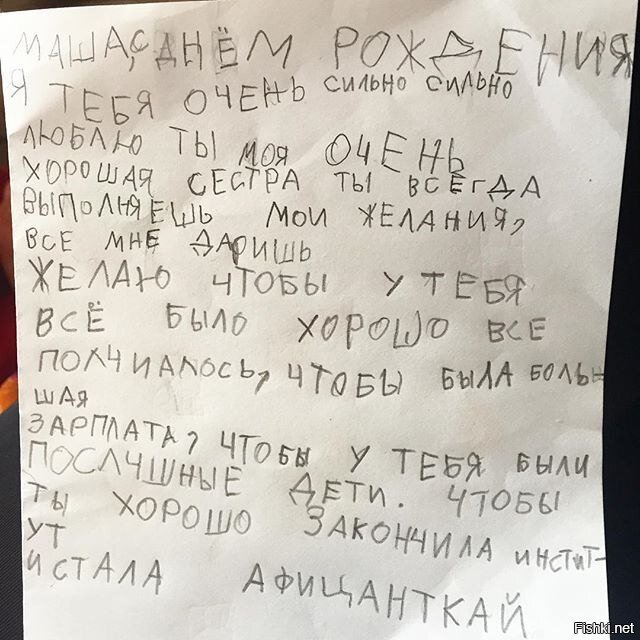 МАША, С ДНЁМ РОЖДЕНИЯ
Я ТЕБЯ ОЧЕНЬ СИЛЬНО СИЛЬНО
ЛЮБЛЮ ТЫ МОЯ ОЧЕНЬ
ХОРОШАЯ СЕСТРА ТЫ ВСЕГДА
ВЫПОЛНЯЕШЬ МОИ ЖЕЛАНИЯ,
ВСЕ МНЕ ДАРИШЬ
ЖЕЛАЮ ЧТОБЫ У ТЕБЯ
ВСЁ БЫЛО ХОРОШО ВСЕ
ПОЛЧИАЛОСЬ, ЧТОБЫ БЫЛА БОЛЬ-
ШАЯ
ЗАРПЛАТА, ЧТОБЫ У ТЕБЯ БЫЛИ
ПОСЛЧШНЫЕ ДЕТИ. ЧТОБЫ
ТЫ ХОРОШО ЗАКОНЧИЛА ИНСТИТ-
УТ
И СТАЛА АФИЦАНТКАЙ
Fishki.net